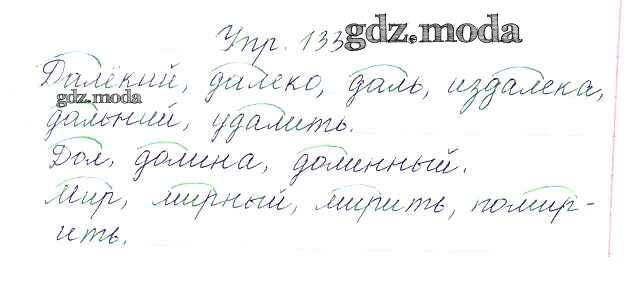 Упр. 133 gdz.moda
Далёкий, далеко, даль, издалека,
gdz.moda
дальний, удалить.
Дол, долина, долинный.
Мир, мирный, мирить, помир-
ить.